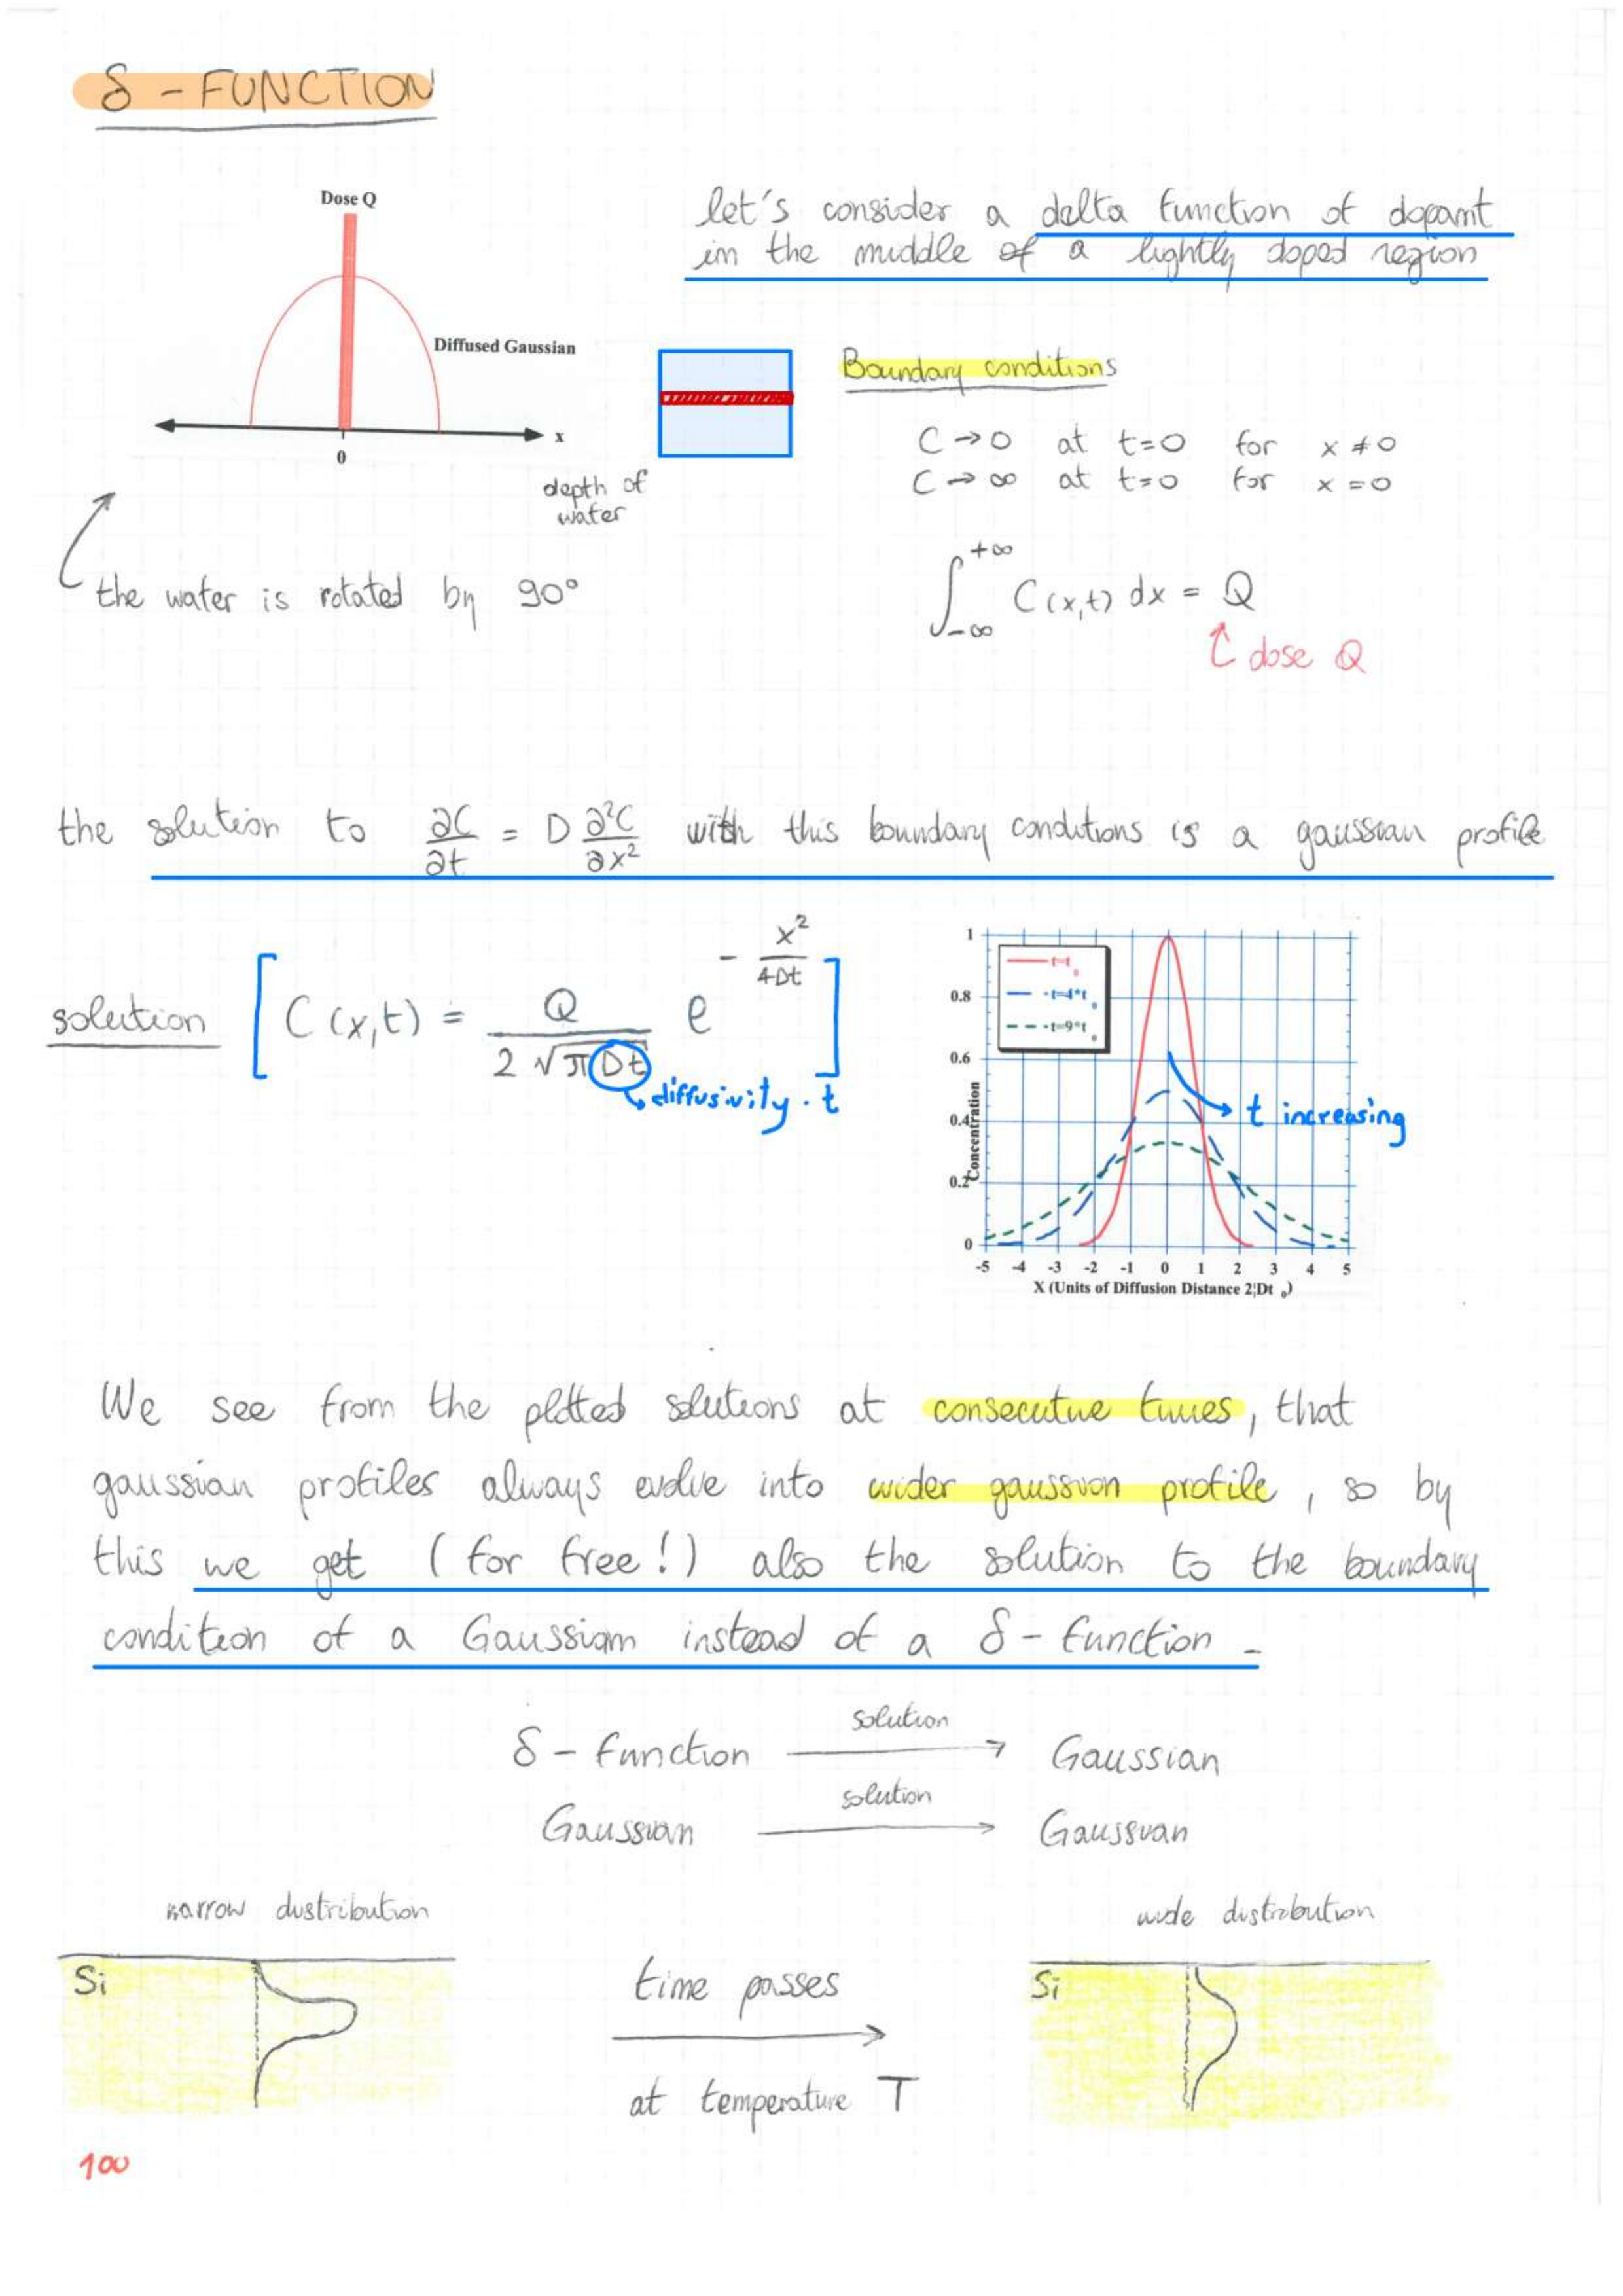 δ - FUNCTION
Dose Q
Diffused Gaussian
x
0
depth of
water
the water is rotated by 90°
let's consider a delta function of dopant
in the middle of a lightly doped region
Boundary conditions
C → 0 at t=0 for x ≠ 0
C → ∞ at t=0 for x = 0
∫_{-∞}^{+∞} C(x,t) dx = Q
dose Q
the solution to ∂C/∂t = D ∂²C/∂x² with this boundary conditions is a gaussian profile
solution [ C(x,t) = Q / (2√πDt) e^{-x²/4Dt} ]
diffusivity · t
1
0.8
0.6
0.4
0.2
0
Concentration
t=t₀
t=4*t₀
t=9*t₀
t increasing
-5 -4 -3 -2 -1 0 1 2 3 4 5
X (Units of Diffusion Distance 2¦Dt ₀)
We see from the plotted solutions at consecutive times, that
gaussian profiles always evolve into wider gaussian profile, so by
this we get (for free!) also the solution to the boundary
condition of a Gaussian instead of a δ - function -
δ - function solution → Gaussian
Gaussian solution → Gaussian
narrow distribution
Si
time passes
at temperature T
wide distribution
Si
100